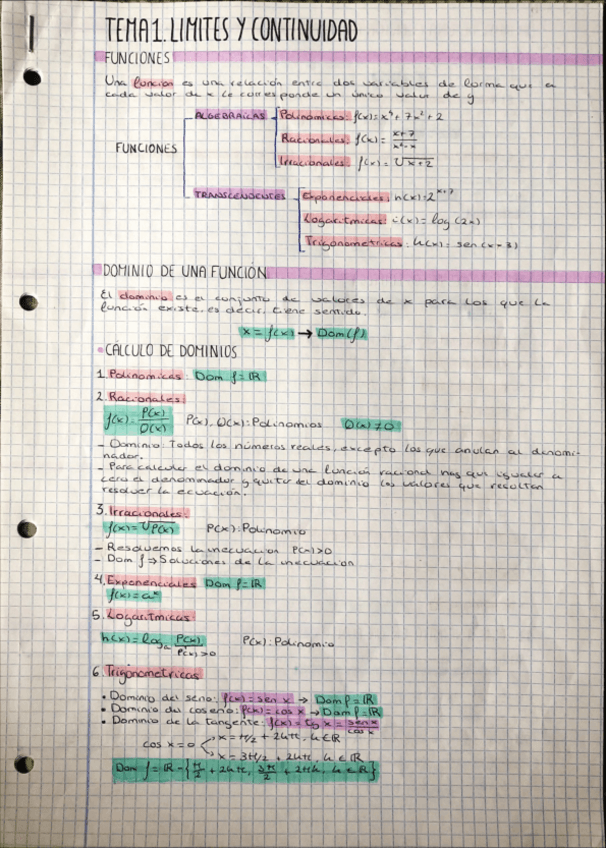 TEMA 1. LIMITES Y CONTINUIDAD
FUNCIONES
Una función es una relación entre dos variables de forma que a
cada valor de x le corresponde un único valor de y
FUNCIONES
ALGEBRAICAS
Polinómicas: f(x)=x⁴+7x²+2
Racionales: f(x)= x+7/
Irracionales: f(x)= √x+2
TRANSCENDENTES
Exponenciales: h(x)=2^x+7
Logarítmicas: i(x)=log(2x)
Trigonometricas: h(x)= sen(x-3)
DOMINIO DE UNA FUNCIÓN
El dominio es el conjunto de valores de x para los que la
función existe, es decir, tiene sentido.
x=f(x) → Dom(f)
• CÁLCULO DE DOMINIOS
1. Polinomicas: Dom f=ℝ
2. Racionales:
f(x)= P(x)/Q(x) P(x), Q(x): Polinomios Q(x)≠0
- Dominio: Todos los números reales, excepto los que anulan al denomi-
nador.
- Para calcular el dominio de una función racional hay que igualar a
cero el denominador y quitar del dominio los valores que resultan
resolver la ecuación.
3. Irracionales:
f(x)= √P(x) P(x): Polinomio
- Resolvemos la inecuacion P(x)>0
- Dom f → Soluciones de la inecuación
4. Exponenciales Dom f=ℝ
f(x)=aˣ
5. Logarítmicas:
h(x)=logₐ P(x) P(x): Polinomio
P(x)>0
6. Trigonometricas
• Dominio del seno: f(x)=sen x → Dom f=ℝ
• Dominio del coseno: f(x)=cos x → Dom f=ℝ
• Dominio de la tangente: f(x)=tg x = sen x/cos x
x=π/2 + 2kπ, k∈ℝ
cos x=0
x=3π/2 + 2kπ, k∈ℝ
Dom f=ℝ-{π/2 + 2kπ, 3π/2 + 2πk, k∈ℝ}